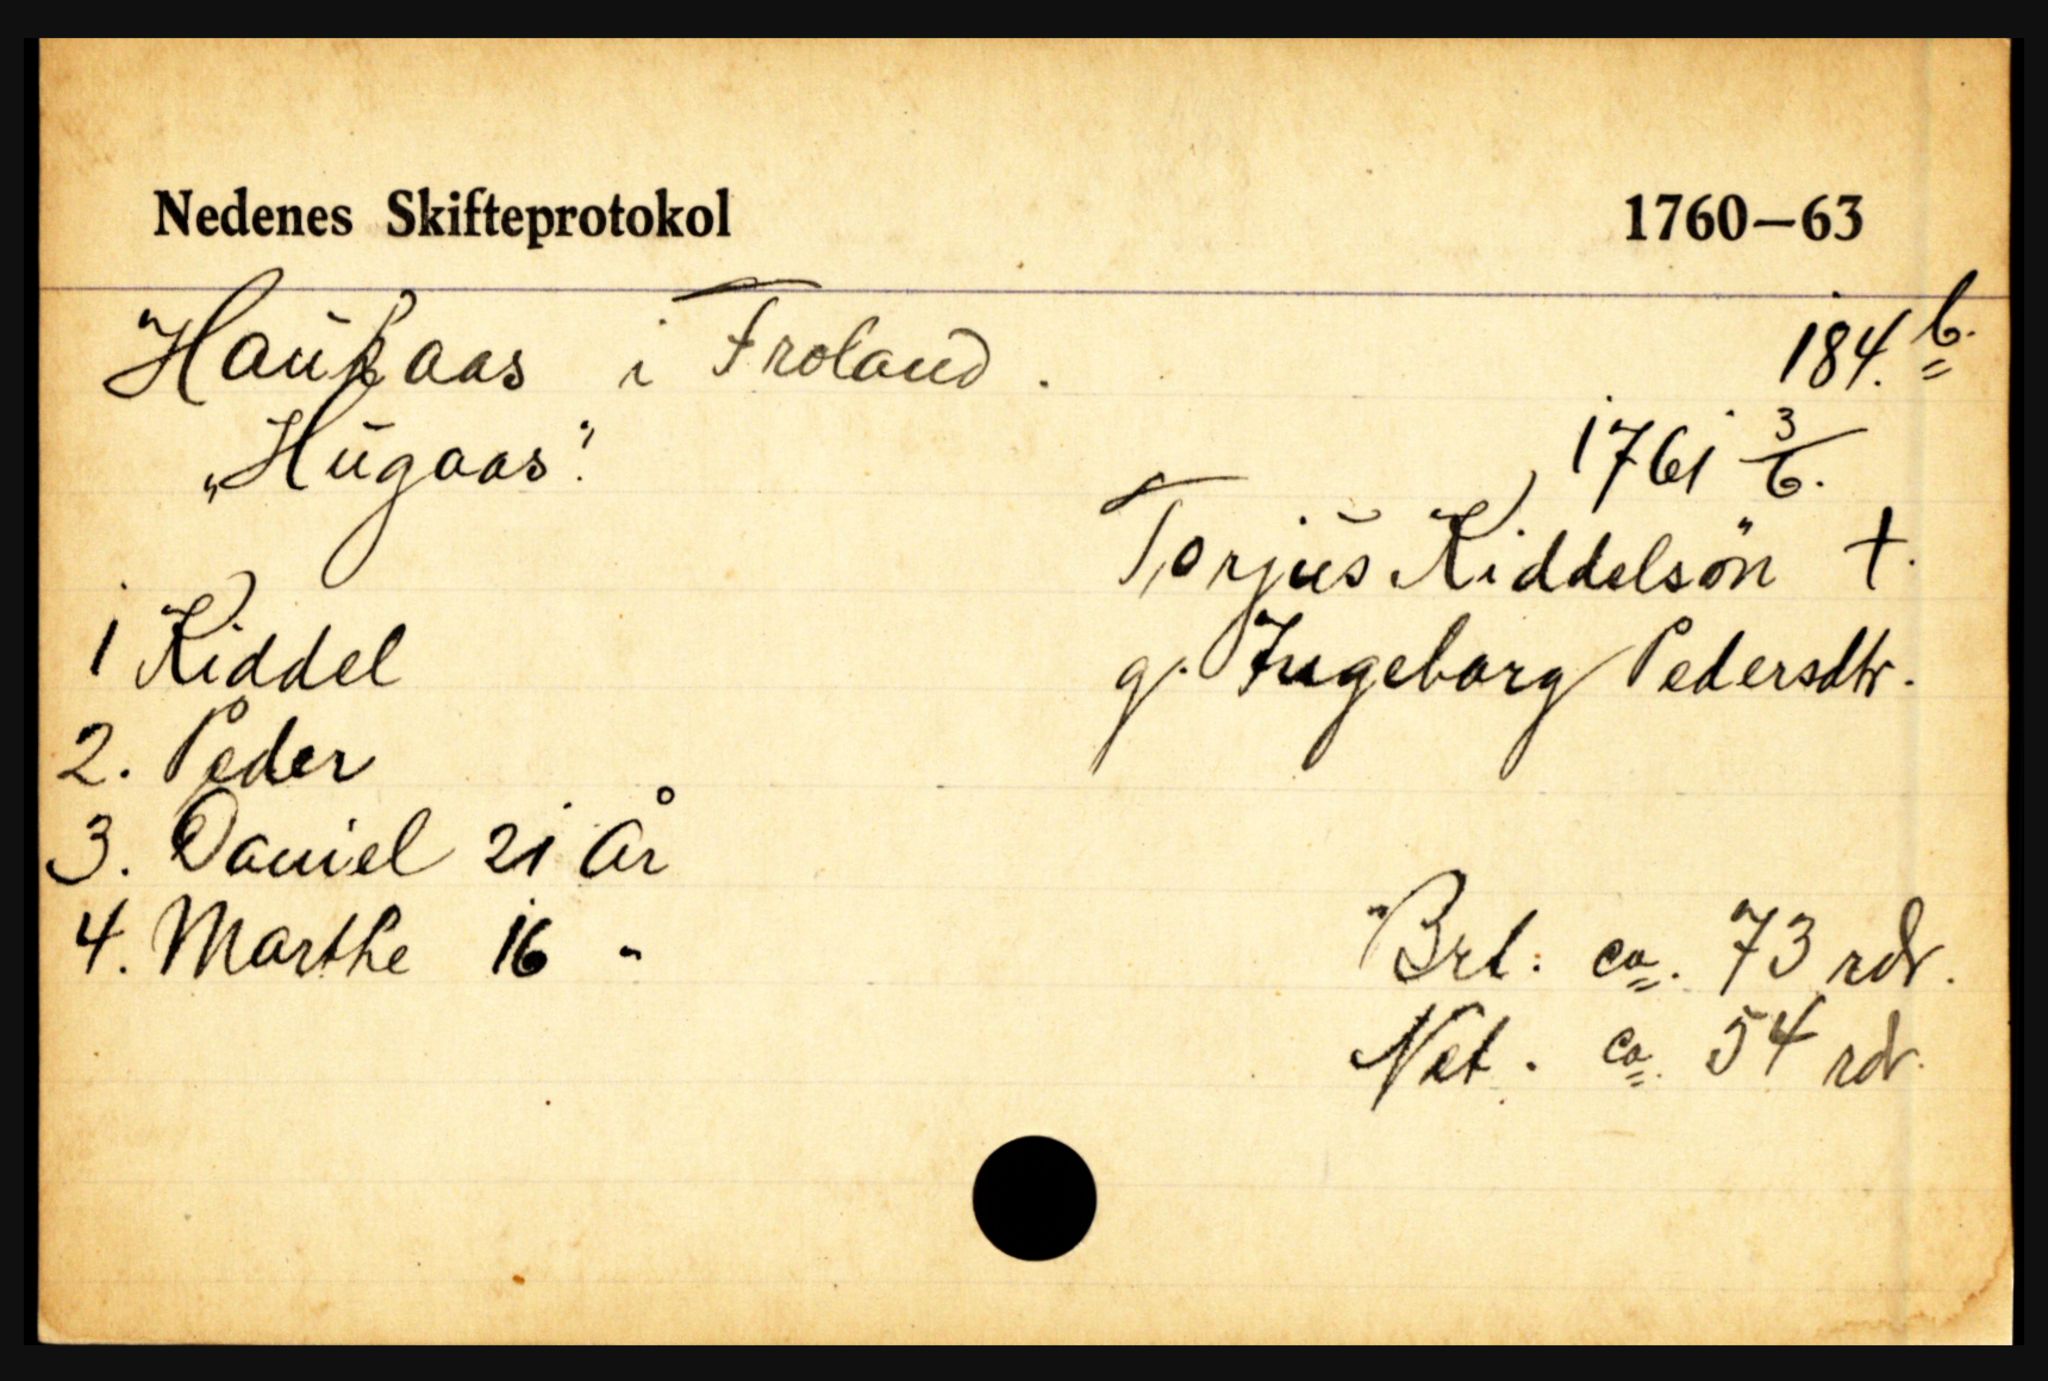 Nedenes Skifteprotokol 1760—63
Haukaas i Froland. 184.b.
„Hugaas".
1761 3/6.
Torjus Kiddelsön †.
g. Ingeborg Pedersdtr.
1 Kiddel
2. Peder
3. Daniel 21 år
4. Marthe 16 "
Brt. ca. 73 rdr.
Net. ca. 54 rdr.